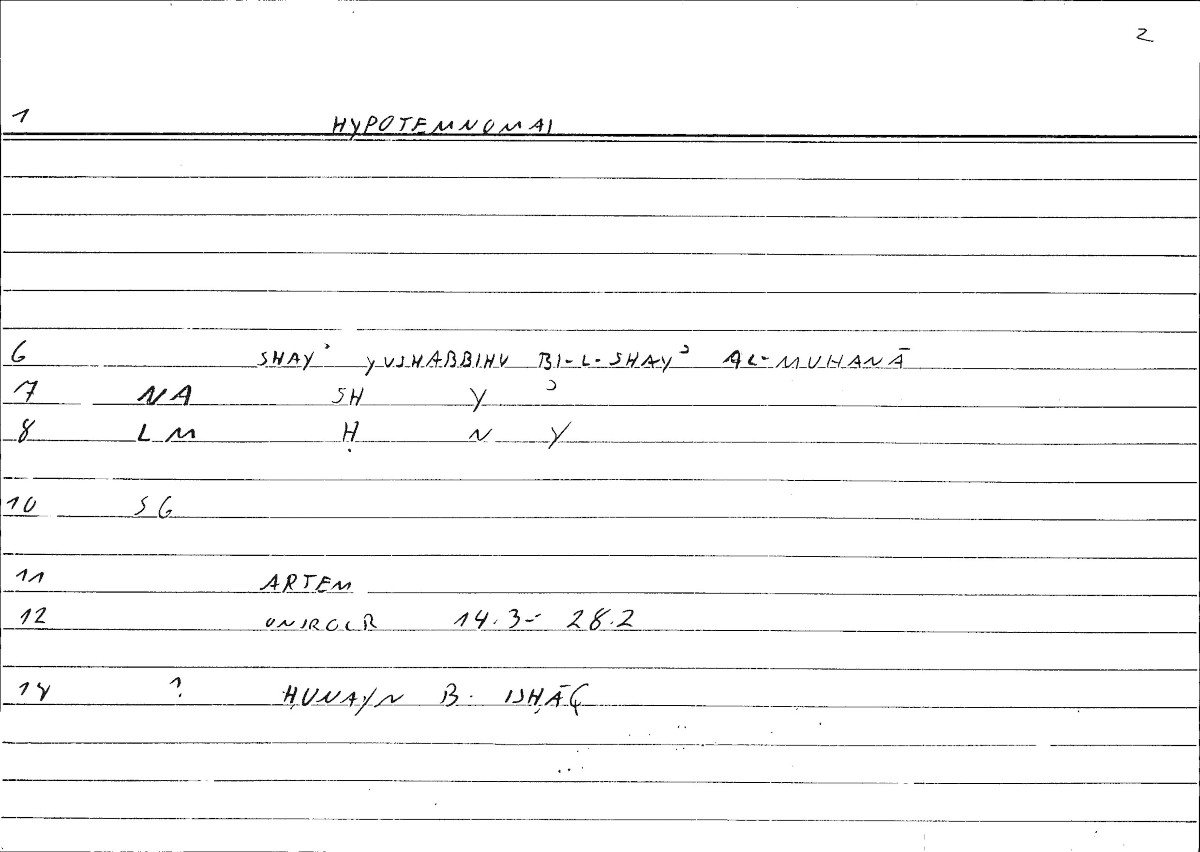 2
1 HYPOTEMNOMAI
6 SHAYʾ YUSHABBIHU BI-L-SHAYʾ AL-MUHANĀ
7 NA SH Y ʾ
8 LM Ḥ N Y
10 SG
11 ARTEM
12 ONIROCR 14.3- 28.2
14 ? ḤUNAYN B. ISḤĀQ